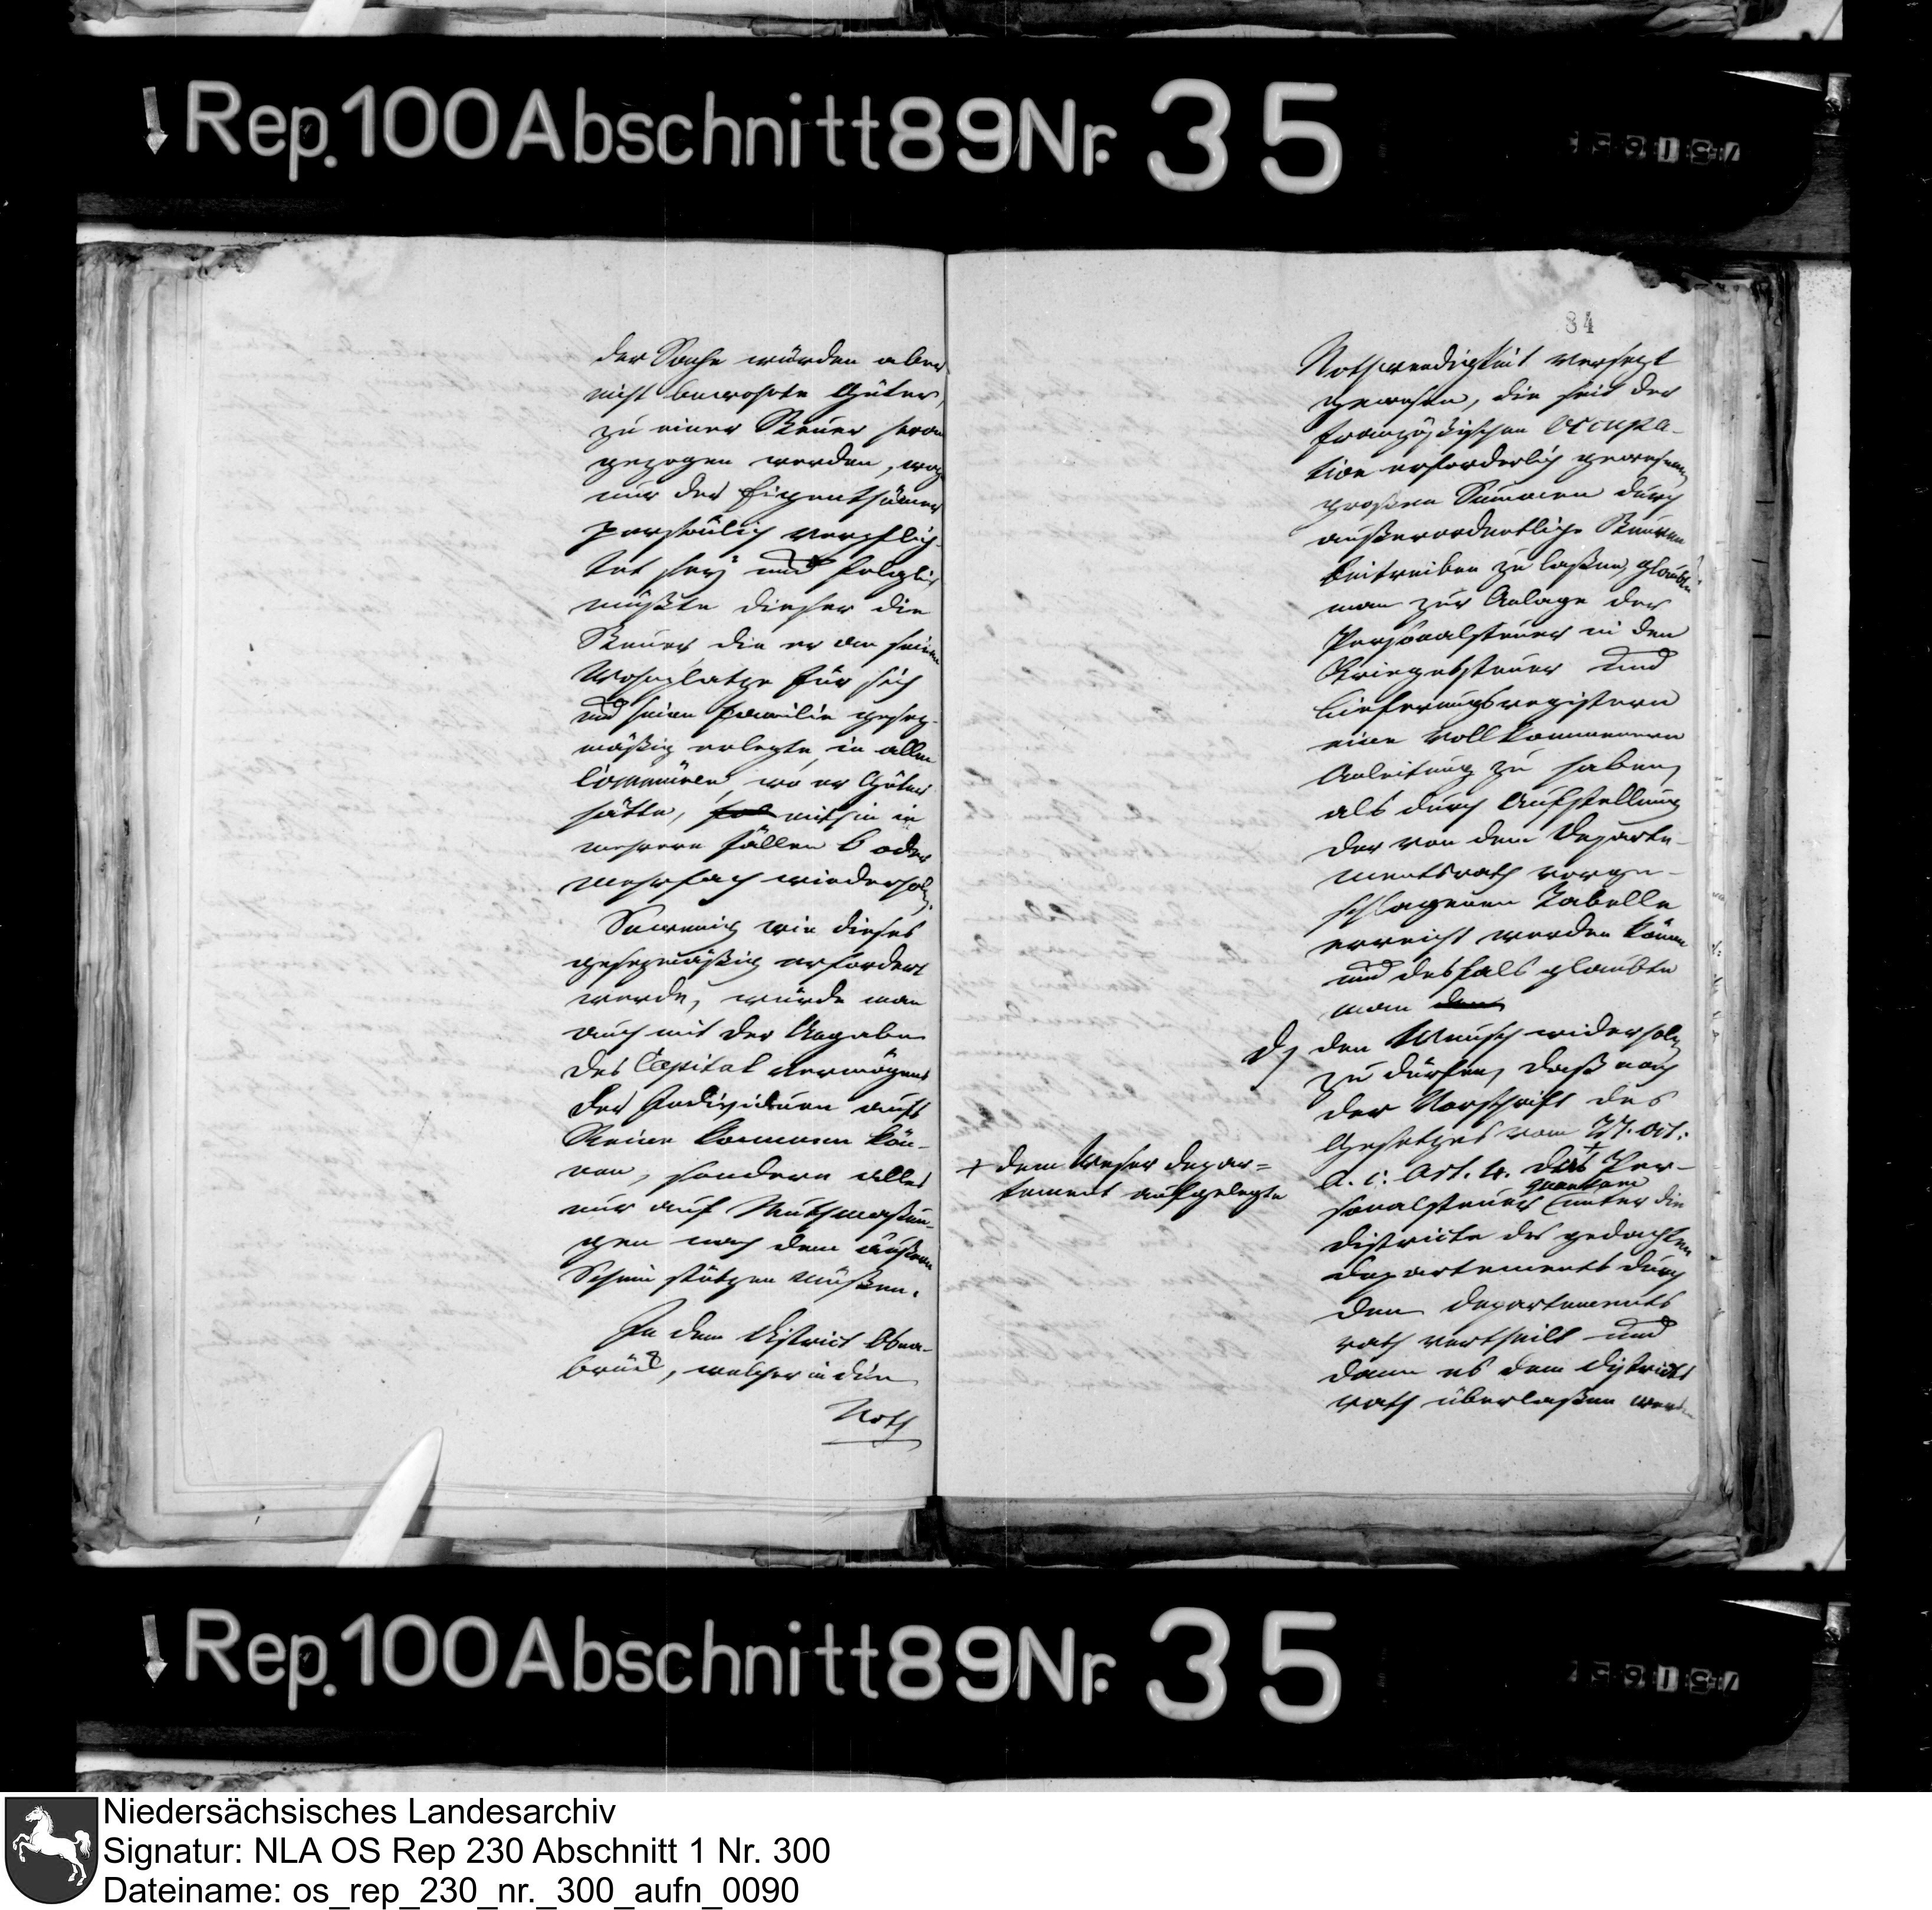 Rep. 100 Abschnitt 89 Nr. 35
der Sache würden aber
nicht bewohnte Güter,
zu einer Steuer heran
gezogen werden, wozu
nur der Eigenthümer
persönlich verpflich-
tet sey und folglich
müßte dieser die
Steuer die er an seinem
Wohnplatze für sich
und seine Familie gesez-
mäßig erlegte, in allen
Communen, wo er Güter
hätte, mithin in
mehrern Fällen 6 oder
mehrfach wiederholen.
Sowenig wie dieses
gesezmäßig erfordert
werde, würde man
auch mit der Angabe
des Capital vermögens
der Individuen aufs
Reine kommen kön-
nen, sondern alles
nur auf Muthmaßun-
gen nach dem äußern
Schein stützen müßen.
In dem District Osna-
brück, welcher in die
Noth
84
Nothwendigkeit versezt
gewesen, die seit der
französischen Occupa-
tion erforderlich gewesenen
großen Summen durch
außerordentliche Steuren
beitreiben zu laßen, glaubte
man zur Anlage der
Personalsteuer in den
Kriegessteuer und
Lieferungsregistern
eine vollkommenere
Anleitung zu haben,
als durch Aufstellung
der von dem Departe-
mentsrath vorge-
schlagenen Tabelle
erreicht werden könne
und desfals glaubte
man
d, den Wunsch widerholen
zu dürfen, daß nach
der Vorschrift des
Gesetzes vom 27. Oct:
a. c: Art. 4. das + Per-
sonalsteuer quantum unter die
+ dem Weser Depar=
tement aufgelegte
Districte des gedachten
Departements durch
den Departements
rath vertheilt und
dann es dem Districts
rath überlaßen werde
Rep. 100 Abschnitt 89 Nr. 35
Niedersächsisches Landesarchiv
Signatur: NLA OS Rep 230 Abschnitt 1 Nr. 300
Dateiname: os_rep_230_nr._300_aufn_0090